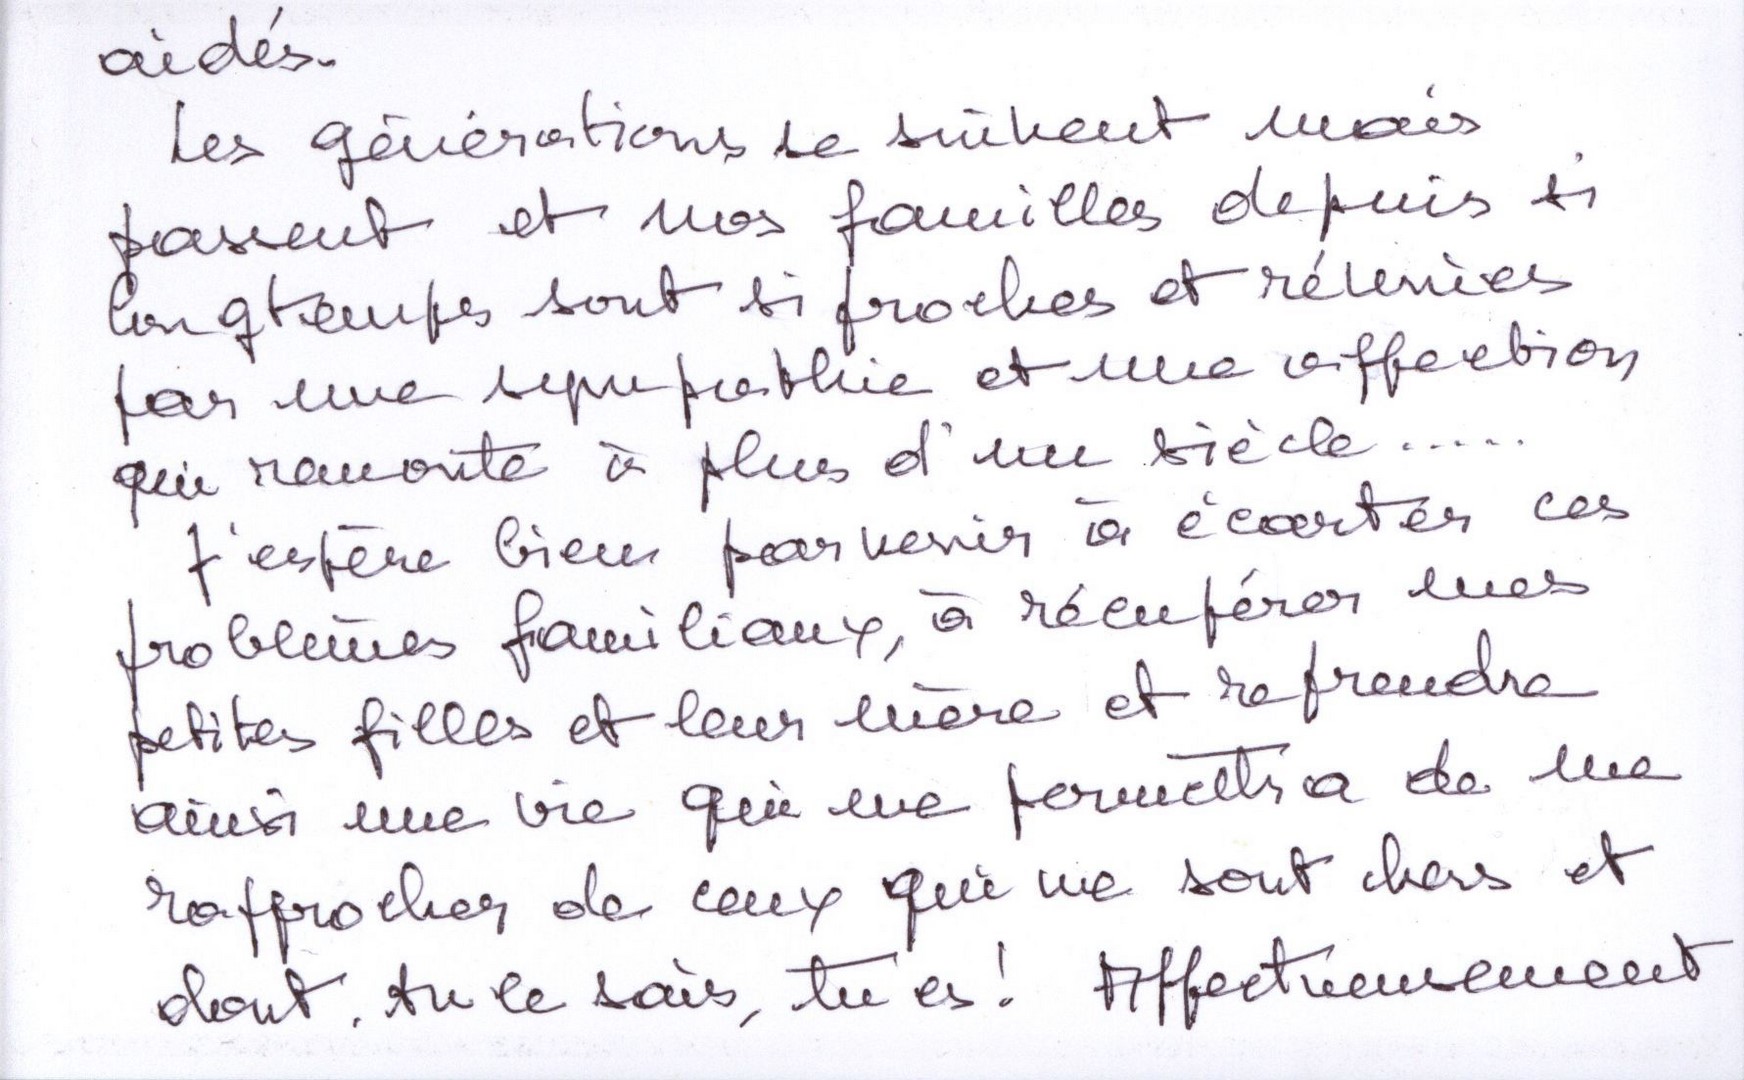 aidés.
Les générations se suivent mais
passent et nos familles depuis si
longtemps sont si proches et réunies
par une sympathie et une affection
qui remonte à plus d'un siècle.....
J'espère bien parvenir à écarter ces
problèmes familiaux, à récupérer mes
petites filles et leur mère et reprendre
ainsi une vie qui me permettra de me
rapprocher de ceux qui me sont chers et
dont, tu le sais, tu es! Affectueusement